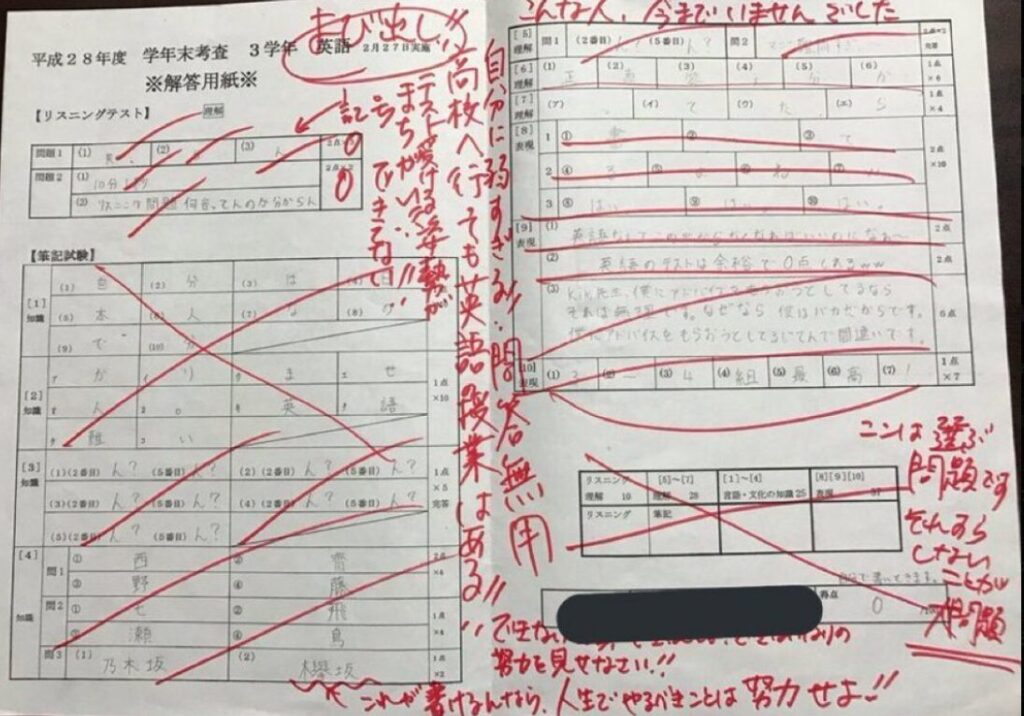 よび出し!!
こんな人、今までいませんでした
平成28年度 学年末考査 3学年 英語 2月27日実施
※解答用紙※
【リスニングテスト】 理解
問題1 (1) (2) (3) ん 2点
問題2 (1) 10分
(2) リスニング問題何言ってんのか分からん
0
0
記号
まちがいが
できてない!!
テスト受ける姿勢が
高校へ行っても英語授業はある!!
自分に弱すぎる!!問答無用
【筆記試験】
[1] 知識 (1) 自 (2) 分 (3) は (4) 日
(5) 本 (6) 人 (7) な (8) の
(9) で (10)
[2] 知識 ア が イ り ウ ま エ せ 1点×10
ん 。 英 語
難 い
[3] 知識 (1)(2番目) ん? (5番目) ん? (2)(2番目) ん? (5番目) ん? 1点×5 完答
(3)(2番目) ん? (5番目) ん? (4)(2番目) ん? (5番目) ん?
(5)(2番目) ん? (5番目) ん?
[4] 知識 問1 ① 西 ② 齋 2点×4
③ 野 ④ 藤
問2 ① 七 ② 飛 1点×4
③ 瀬 ④ 鳥
問3 (1) 乃木坂 (2) 欅坂 1点×2
[5] 理解 問1 (2番目) ん? (5番目) ん? 問2 完答
[6] 理解 (1) 正 (2) (3) (4) (5) 分 (6) か 1点×6
[7] 理解 (ア) (イ) て (ウ) た (エ) ら 1点×4
[8] 表現 1 ① ② ③ て 2点×10
2 ④ ⑤ ⑥ ね ⑦
3 ⑧ はい。 ⑨ はい。 ⑩ はい。
[9] 表現 (1) 英語なんてこの世からなくなればいいのになぁ〜 2点
(2) 英語のテストは余裕で0点とれるww 2点
(3) 先生、僕にアドバイスをもらおうとしてるなら
それは無理です。なぜなら 僕はバカだからです。
僕にアドバイスをもらおうとしてるじてんで間違いです。 6点
[10] 表現 (1) 3 (2) ー (3) 4 (4) 組 (5) 最 (6) 高 (7) ! 1点×7
ここは選ぶ
問題です
それすら
しない
ことが
大問題
リスニング 理解 10 [5]~[7] 理解 28 [1]~[4] 言語・文化の知識 25 [8][9][10] 表現 37
リスニング 筆記
得点 0
できない
なりの
努力を見せなさい!!
これが書けるんなら、人生でやるべきことは努力せよ!!